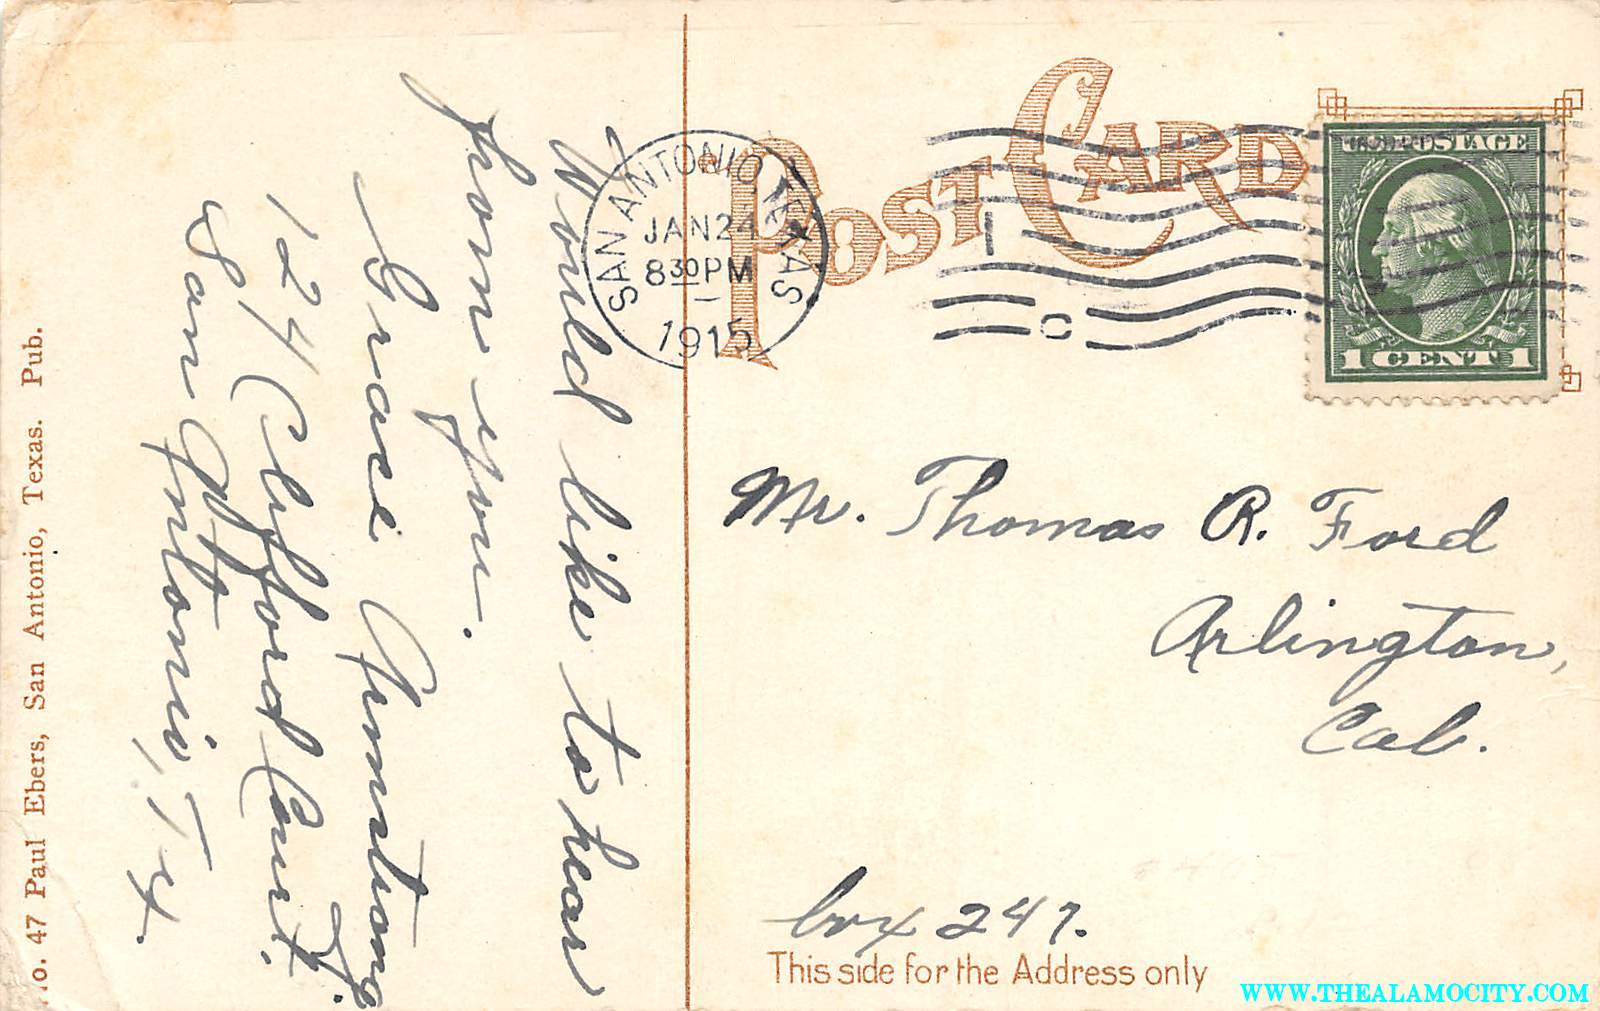 Would like to hear
from you.
Grace Armstrong
124 Clifford Court.
San Antonio, Tex.
No. 47 Paul Ebers, San Antonio, Texas. Pub.
POST CARD
SAN ANTONIO, TEXAS
JAN 24
8 30 PM
1915
1
U.S. POSTAGE
1 CENT 1
Mr. Thomas R. Ford
Arlington,
Cal.
box 247.
This side for the Address only
WWW.THEALAMOCITY.COM